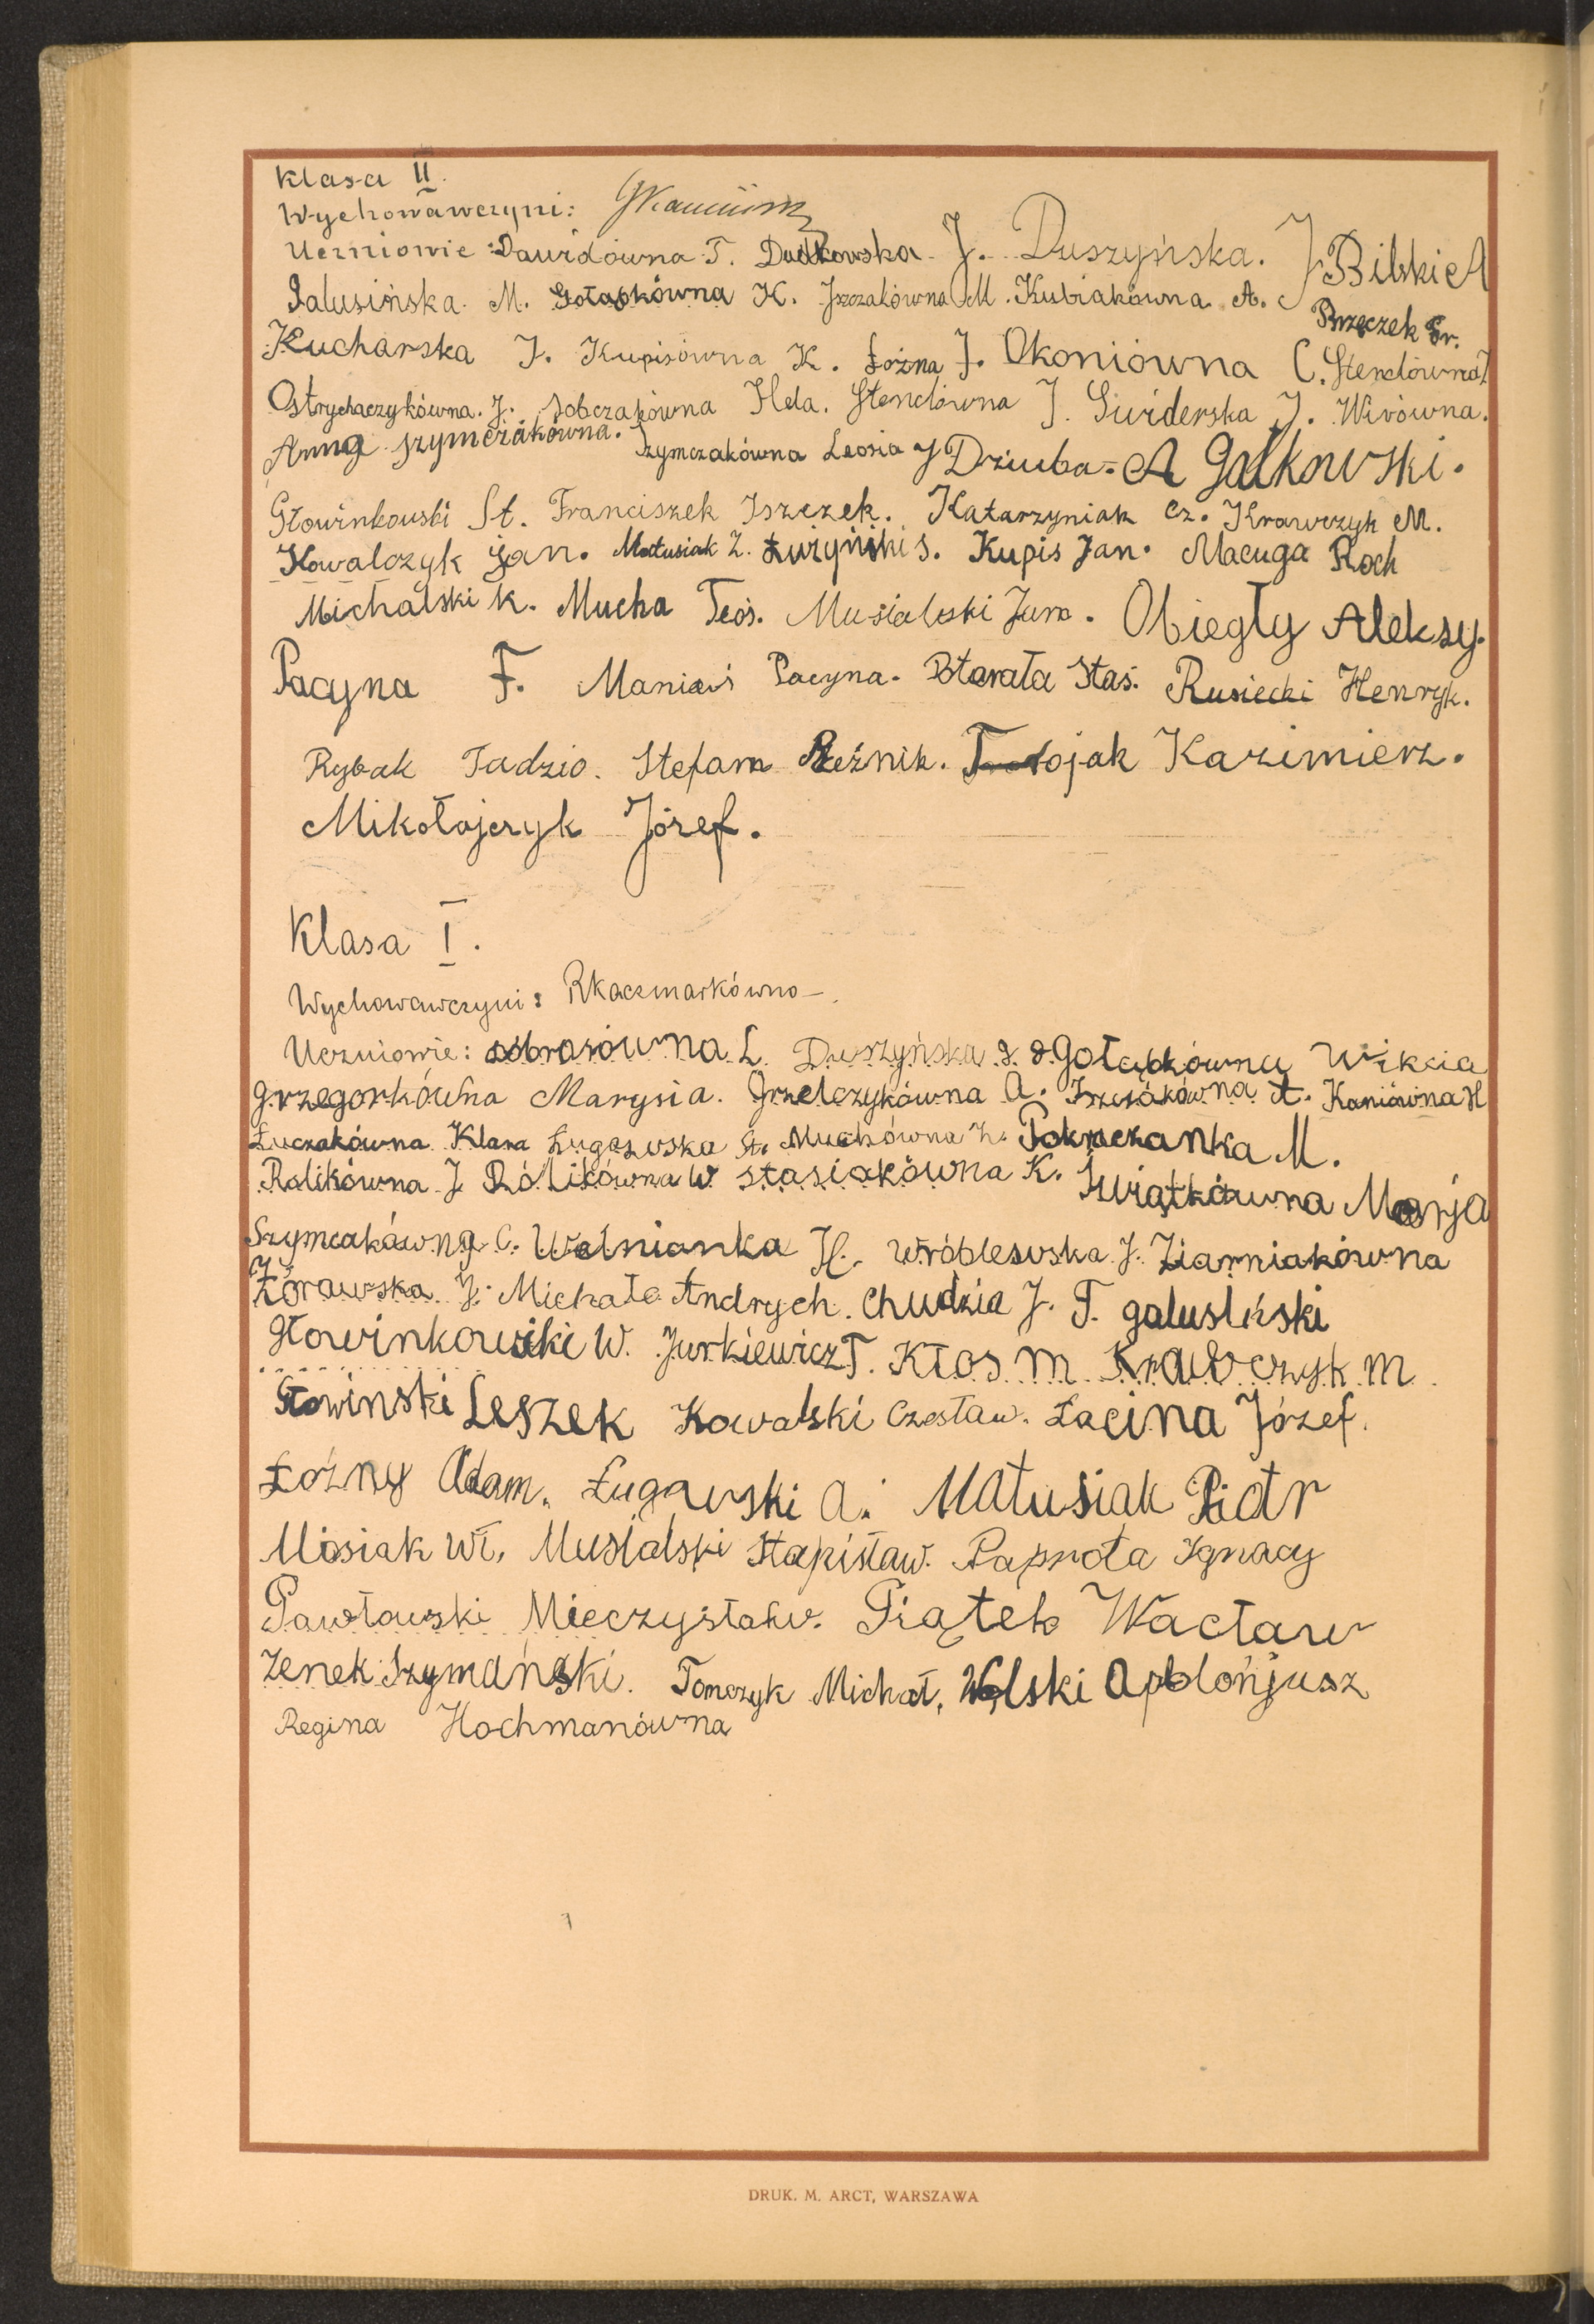 Klasa II.
Wychowawczyni:
Uczniowie: Dawidówna T. Dudkowska J. Duszyńska. J Bilski A
Galusińska M. Gołąbkówna K. Jszczakówna M. Kubiakówna A. Brzęczek Fr.
Kucharska J. Kupisówna K. Łoźna J. Okoniówna C. Stendówna J
Ostrychaczykówna. J. Sobczakówna Hela. Stendówna J. Świderska J. Wirówna.
Anna Szymczakówna. Szymczakówna Leosia J Dziuba - A Gałkowski.
Głowinkowski St. Franciszek Jszczek. Katarzyniak Cz. Krawczyk M.
Kowalczyk Jan. Matusiak Z. Łużyński S. Kupis Jan. Macuga Roch
Michalski K. Mucha Teoś. Musialski Jan. Obiegły Aleksy.
Pacyna F. Maniuś Pacyna. Ptarała Staś. Rusiecki Henryk.
Rybak Tadzio. Stefan Rzeźnik. Kazimierz.
Mikołajczyk Józef.
Klasa I.
Wychowawczyni: RKaczmarkówna
Uczniowie: L. Duszyńska Gołąbkówna Wikcia
Grzegorkówna Marysia. Grzelczykówna A. Jszczakówna A. Kaniówna H
Łuczakówna Klara Ługowska St. Muchówna Z. Pokraczanka M.
Rolikówna J Rólikówna W Stasiakówna K. Świątkówna Marja
Szymczakówna C. Wolnianka H. Wróblewska J. Ziarniakówna
Żórawska J. Michało Andrych. Chudzia J. T. Galusiński
Głowinkowski W. Jurkiewicz T. Kłos M Krawczyk M
Głowinski Leszek Kowalski Czesław. Łacina Józef.
Łoźny Adam. Ługowski A. Matusiak Piotr
Misiak Wł. Musialski Stanisław. Paprota Ignacy
Pawłowski Mieczysław. Piątek Wacław
Zenek Szymański. Tomczyk Michał, Wolski Apolonjusz
Regina Hochmanówna
DRUK. M. ARCT, WARSZAWA